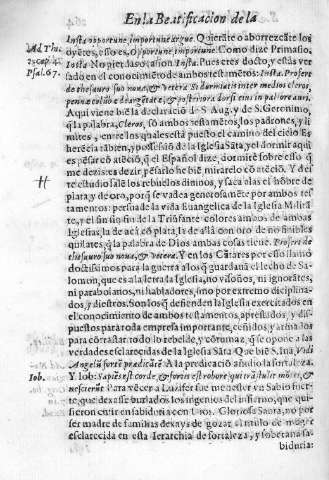 En la Beatificacion de la
Insta opportune, importune arque. Quieráte o aborrezcáte los
oyētes, esso es, Opportune, importune. Como dize Primasio,
Insta. No pierdas ocasion Insta. Pues eres docto, y estás ver
sado en el conocimiēto de ambos testamētos: Insta. Profert
de thesauro suo noua, & vetera. Si dormiatis inter medios cleros,
pennæ columbæ deargētatæ, & posteriora dorsi eius in pallore auri.
Ad Thi.
2. cap. 4.
Psal. 67.
Aqui viene biē la declaració de S. Aug. y de S. Geronimo,
q̄ la palabra, Cleros, só ambos testamētos, los padrones, y li
mites, entre los quales está puesto el camino del cielo Es
herēcia tābien, y possessió de la Iglesia Sāta, y el dormir aqui
es pēsar có atēció, q̄ el Español dize, dormiré sobre esso q̄
me dezis: es dezir, pēsarlo he biē, mirarelo có atēció. Y des
te estudio salē los rebuelos diuinos, y saca alas el hōbre de
H
plata, y de oro, porq̄ se vāda generosa mēte por ambos tes-
tamentos: persuade la vida Euangelica de la Iglesia Militā
te, y el fin sin fin de la Triūfante colores ambos de ambas
Iglesias, la de acá có plata, la de allá con oro de no finibles
quilates, q̄ la palabra de Dios ambas cosas tiene. Profert de
thesauro suo noua, & vetera. Y en los Cātares por esso llamó
doctissimos para la guerra a los q̄ guardauā el lecho de Sa-
lomon, que es a la letra la Iglesia, no visoños, ni ignorātes,
ni paraboianos, ni habladores, sino por extremo diciplina-
dos, y diestros. Son los q̄ defienden la Iglesia exercitados en
el conocimiento de ambos testamentos, aprestados, y dis-
puestos para toda empresa importante, ceñidos, y armados
para cōtrastar todo lo rebelde, y cōtumaz, q̄ se opone a las
verdades esclarecidas de la Iglesia Sāta Que biē S. Iuā, Vidi
Angelū fortē prædicātē. A la predicació añadio la fortaleza.
Iob.
Y Iob: Sapiēs est corde, & fortis est robore: qui trāstulit mōtes, &
nescierūt Para vēcer a Luzifer fue menester vn Sabio fuer-
te, que dexasse burlados los ingenios del infierno, que qui-
sieron cōtra sabiduria con Dios. Gloriosa Santa, no por
ser madre de familias dexays de gozar el titulo de muger
esclarecida en esta Ierarchia de fortaleza, y soberana sa-
biduria: